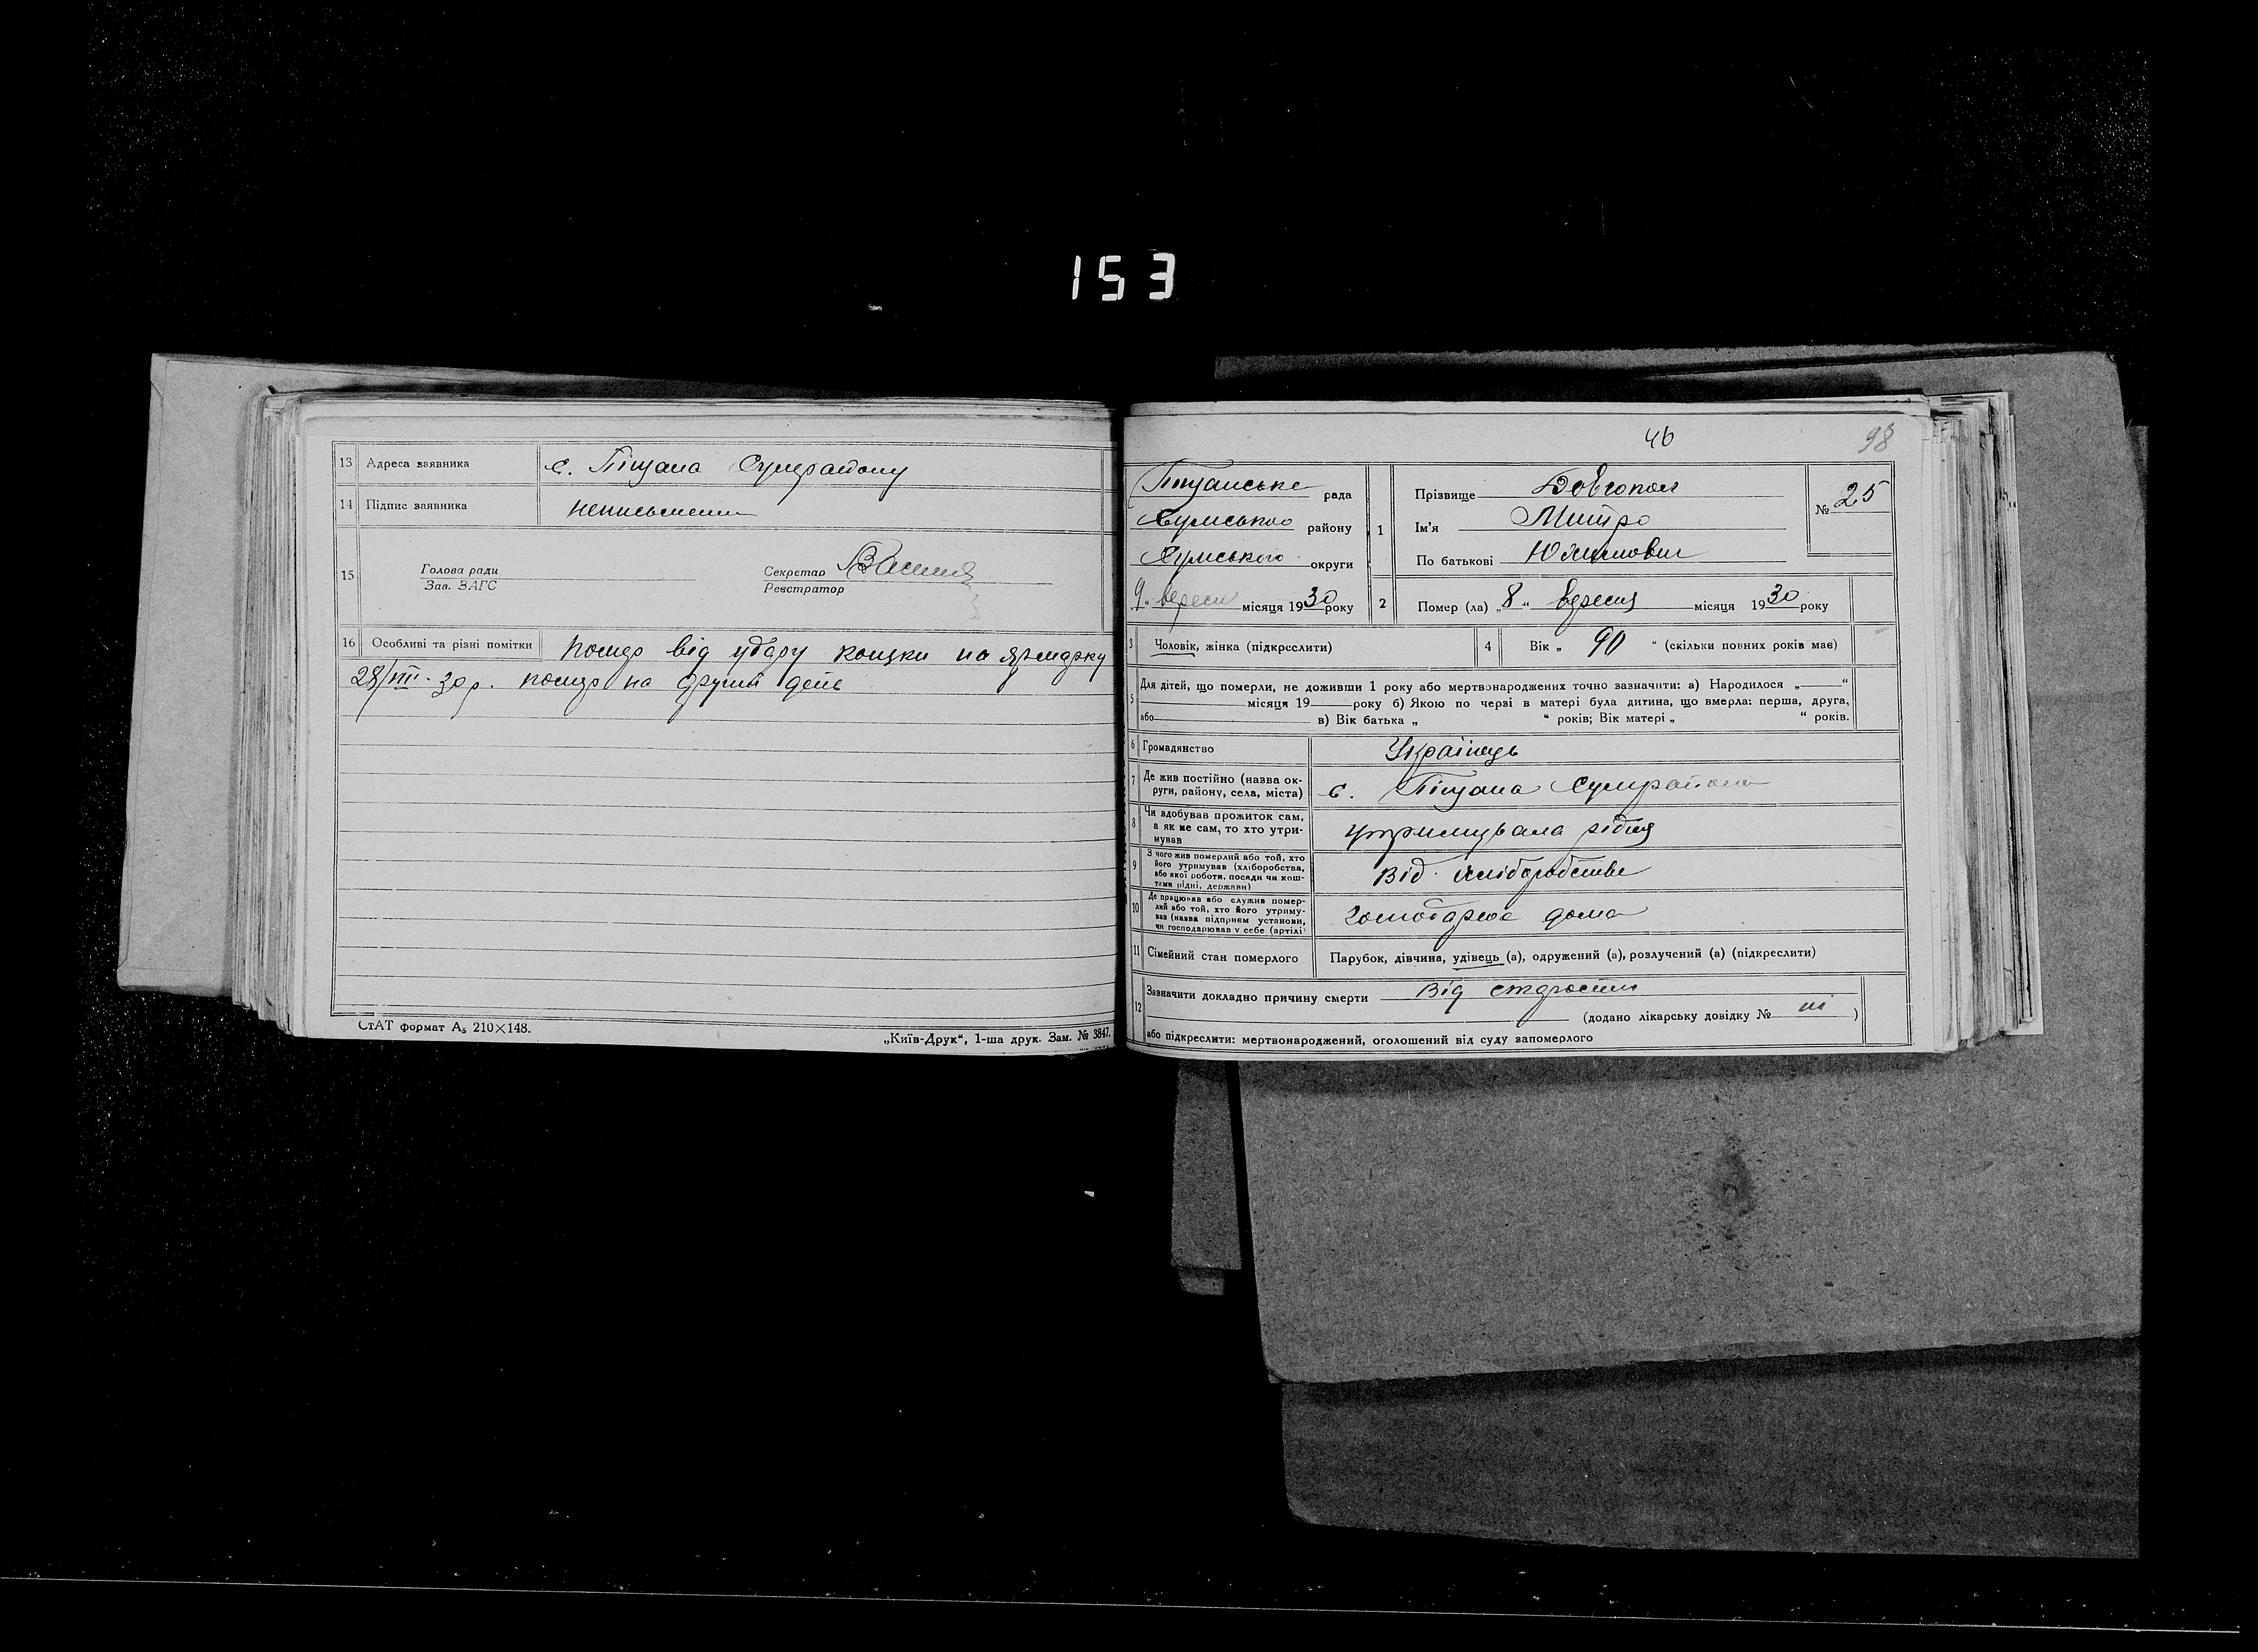 153
13 Адреса заявника с. Піщана Сумрайону
14 Підпис заявника неписьменни
15 Голова ради
Зав. ЗАГС
Секретар
Реєстратор
16 Особливі та різні помітки помер від удару коняки на ярмарку
28/VIII-30 р. помер на другий день
СтАТ формат А5 210×148.
„Київ-Друк“, 1-ша друк. Зам. № 3847.
46
98
Піщанська рада
Сумського району
Сумського округи
„9“ вересня місяця 1930 року
1 Прізвище Довгопол
Ім'я Митро
По батькові Юхимович
№ 25
2 Помер (ла) „8“ вересня місяця 1930 року
3 Чоловік, жінка (підкреслити)
4 Вік „ 90 “ (скільки повних років має)
5 Для дітей, що померли, не доживши 1 року або мертвонароджених точно зазначити: а) Народилося „ “
місяця 19 року б) Якою по черзі в матері була дитина, що вмерла: перша, друга,
або в) Вік батька „ “ років; Вік матері „ “ років.
6 Громадянство Українець
7 Де жив постійно (назва ок-
руги, району, села, міста) с. Піщана Сумрайона
8 Чи здобував прожиток сам,
а як не сам, то хто утри-
мував утримувала рідня
9 З чого жив померлий або той, хто
його утримував (хліборобства,
або якої роботи, посади чи кош-
тами рідні, держави) Від хліборобства
10 Де працював або служив помер-
лий або той, хто його утриму-
вав (назва підприєм установи,
чи господарював у себе (артілі) господарює дома
11 Сімейний стан померлого Парубок, дівчина, удівець (а), одружений (а), розлучений (а) (підкреслити)
12 Зазначити докладно причину смерти Від старости
(додано лікарську довідку № ні )
або підкреслити: мертвонароджений, оголошений від суду запомерлого